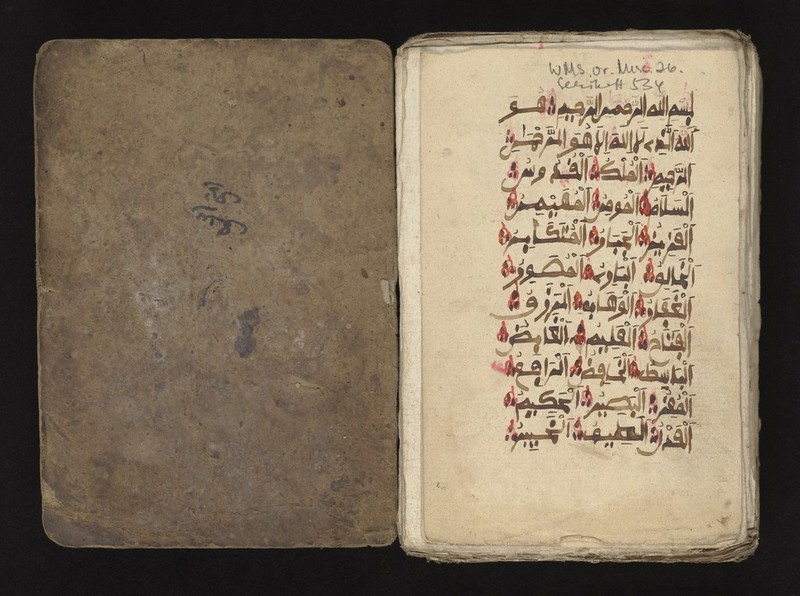 WMS. or. Misc. 26.
Serikoff 534
بسم الله الرحمن الرحيم هو
الله الذي لا اله الا هو الرحمن
الرحيم الملك القدوس
السلام المومن المهيمن
العزيز الجبار المتكبر
الخالق الباري المصور
الغفار الوهاب
الفتاح العليم القابض
الباسط الخافض الرافع
المعز البصير الحكيم
العدل اللطيف الخبير